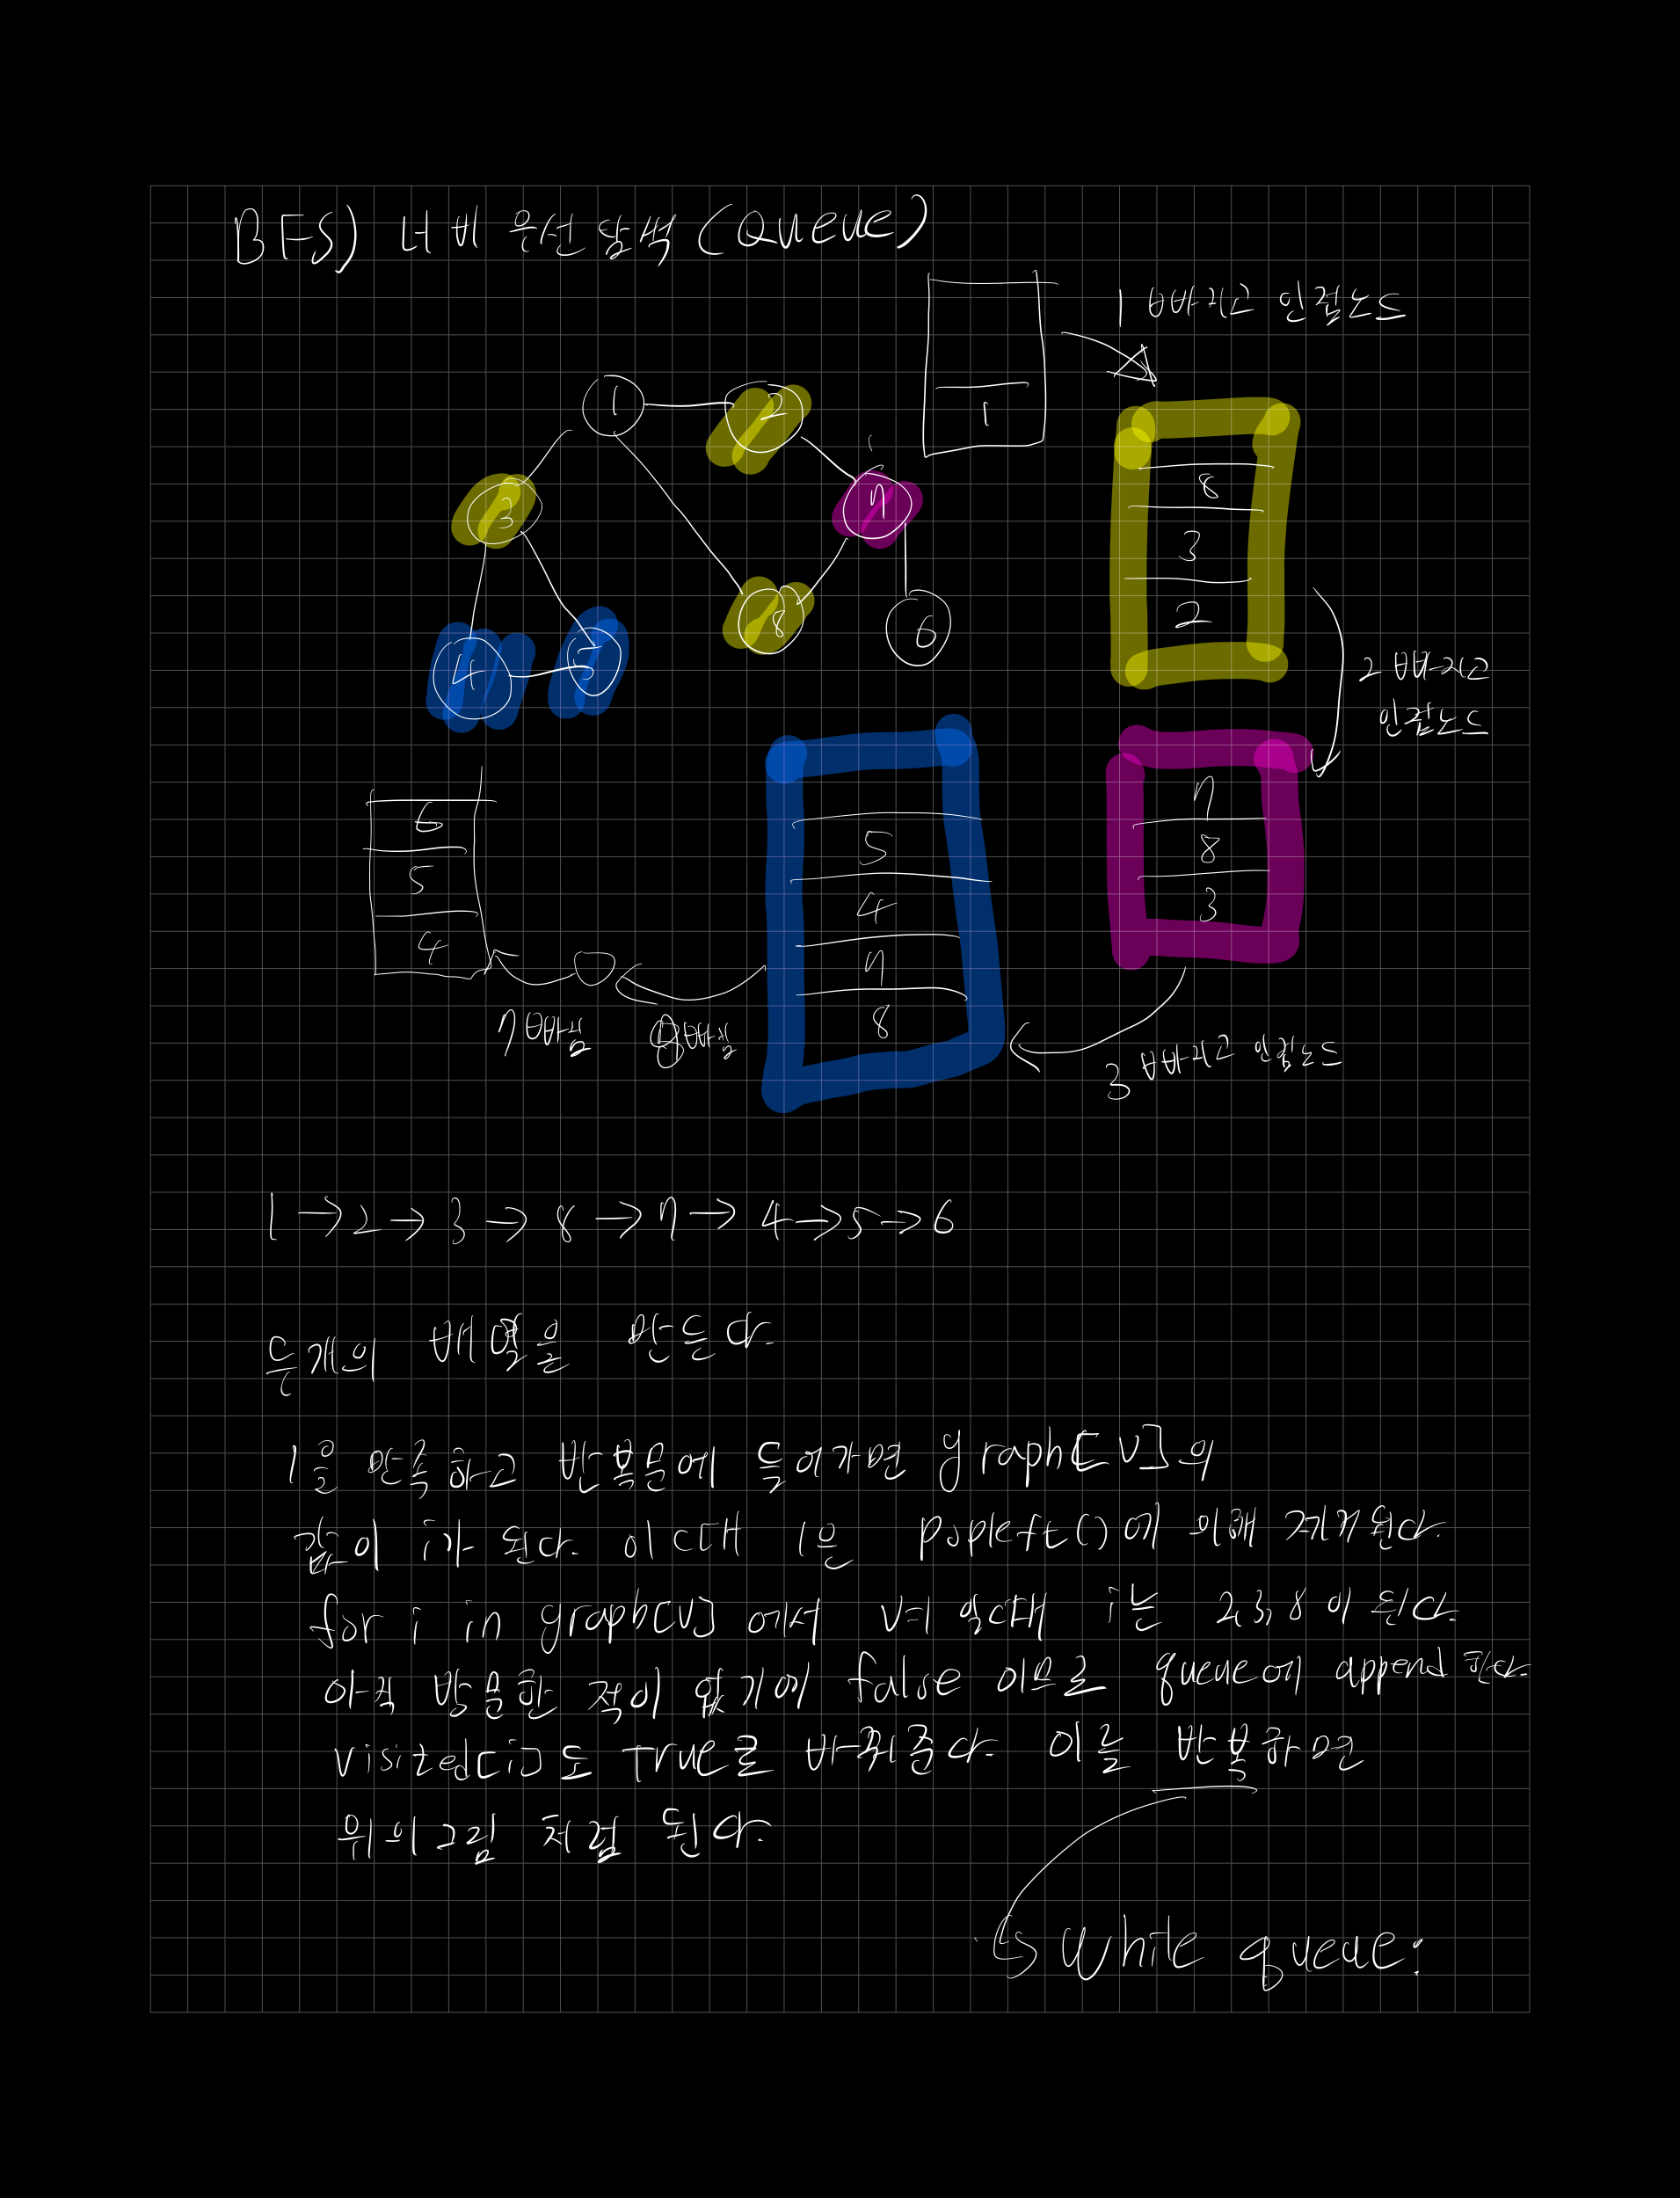 BFS) 너비 우선 탐색 (Queue)
1 빠지고 인접노드
1
1
2
3
7
8
4
5
6
8
3
2
2 빠지고
인접노드
7
8
3
6
5
4
5
4
7
8
7 빠짐
8 빠짐
3 빠지고 인접노드
1 → 2 → 3 → 8 → 7 → 4 → 5 → 6
두개의 배열을 만든다.
1을 만족하고 반복문에 들어가면 graph[V]의
값이 i가 된다. 이때 1은 popleft()에 의해 제거된다.
for i in graph[V] 에서 V=1 일때 i는 2,3,8 이 된다.
아직 방문한 적이 없기에 false 이므로 queue에 append 한다.
visited[i]도 True로 바꿔준다. 이를 반복하면
위의 그림 처럼 된다.
↳ While queue: